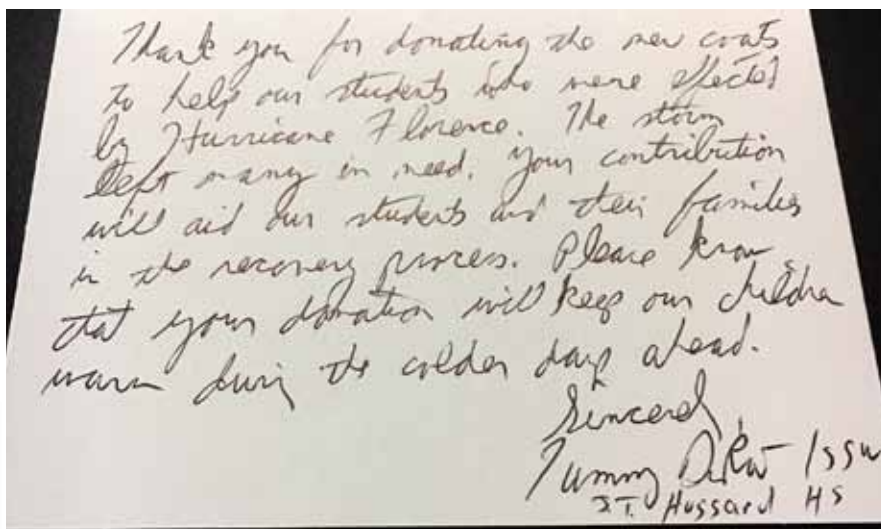 Thank you for donating the new coats
to help our students who were effected
by Hurricane Florence. The storm
left many in need. Your contribution
will aid our students and their families
in the recovery process. Please know
that your donation will keep our children
warm during the colder days ahead.
Sincerely,
Tammy ISSW
J.T. Hussard HS